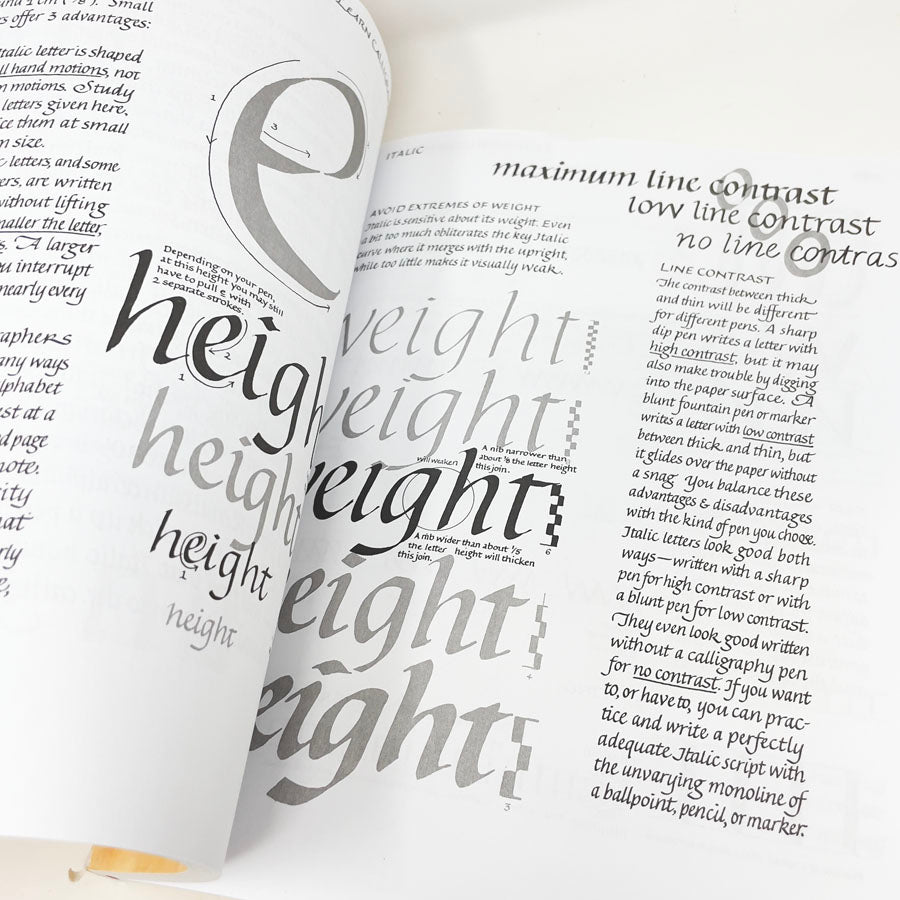 and 1 cm (
). Small
rs offer 3 advantages:
talic letter is shaped
ll hand motions, not
m motions. Study
letters given here,
ice them at small
m size.
c letters, and some
ers, are written
without lifting
maller the letter,
s. A larger
ou interrupt
nearly every
raphers
any ways
lphabet
est at a
d page
note.
city
hat
rly
e,
LEARN CALLIG
1
2
3
Depending on your pen,
at this height you may still
have to pull e with
2 separate strokes.
height
1
2
height
height
1
height
ITALIC
AVOID EXTREMES OF WEIGHT
Italic is sensitive about its weight. Even
a bit too much obliterates the key Italic
curve where it merges with the upright,
while too little makes it visually weak.
weight
weight
will weaken
A nib narrower than
about ⅛ the letter height
this join.
weight
6
A nib wider than about ⅕
the letter height will thicken
this join.
eight
4
eight
3
maximum line contrast
low line contrast
no line contras
LINE CONTRAST
The contrast between thick
and thin will be different
for different pens. A sharp
dip pen writes a letter with
high contrast, but it may
also make trouble by digging
into the paper surface. A
blunt fountain pen or marker
writes a letter with low contrast
between thick and thin, but
it glides over the paper without
a snag. You balance these
advantages & disadvantages
with the kind of pen you choose.
Italic letters look good both
ways—written with a sharp
pen for high contrast or with
a blunt pen for low contrast.
They even look good written
without a calligraphy pen
for no contrast. If you want
to, or have to, you can prac-
tice and write a perfectly
adequate Italic script with
the unvarying monoline of
a ballpoint, pencil, or marker.